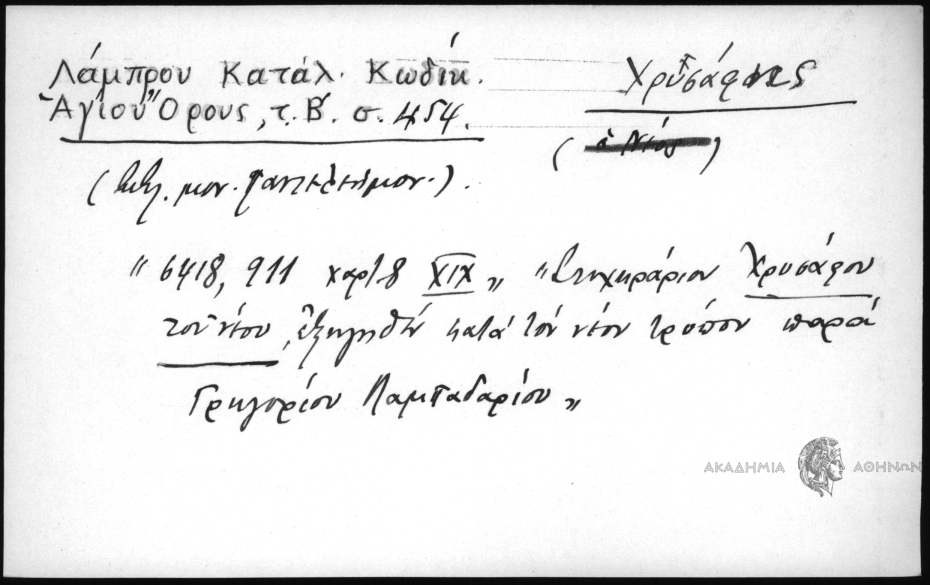 Λάμπρου Κατάλ. Κωδίκ.
Ἁγίου Ὄρους, τ. Β'. σ. 454.
Χρυσάφης
(ὁ Νέος)
(Βιβλ. μον. Παντελεήμον.).
"6418, 911 χαρτ. 8 XIX" "Στιχηράριον Χρυσάφου
τοῦ νέου, ἐξηγηθὲν κατὰ τὸν νέον τρόπον παρὰ
Γρηγορίου Λαμπαδαρίου"
ΑΚΑΔΗΜΙΑ ΑΘΗΝΩΝ